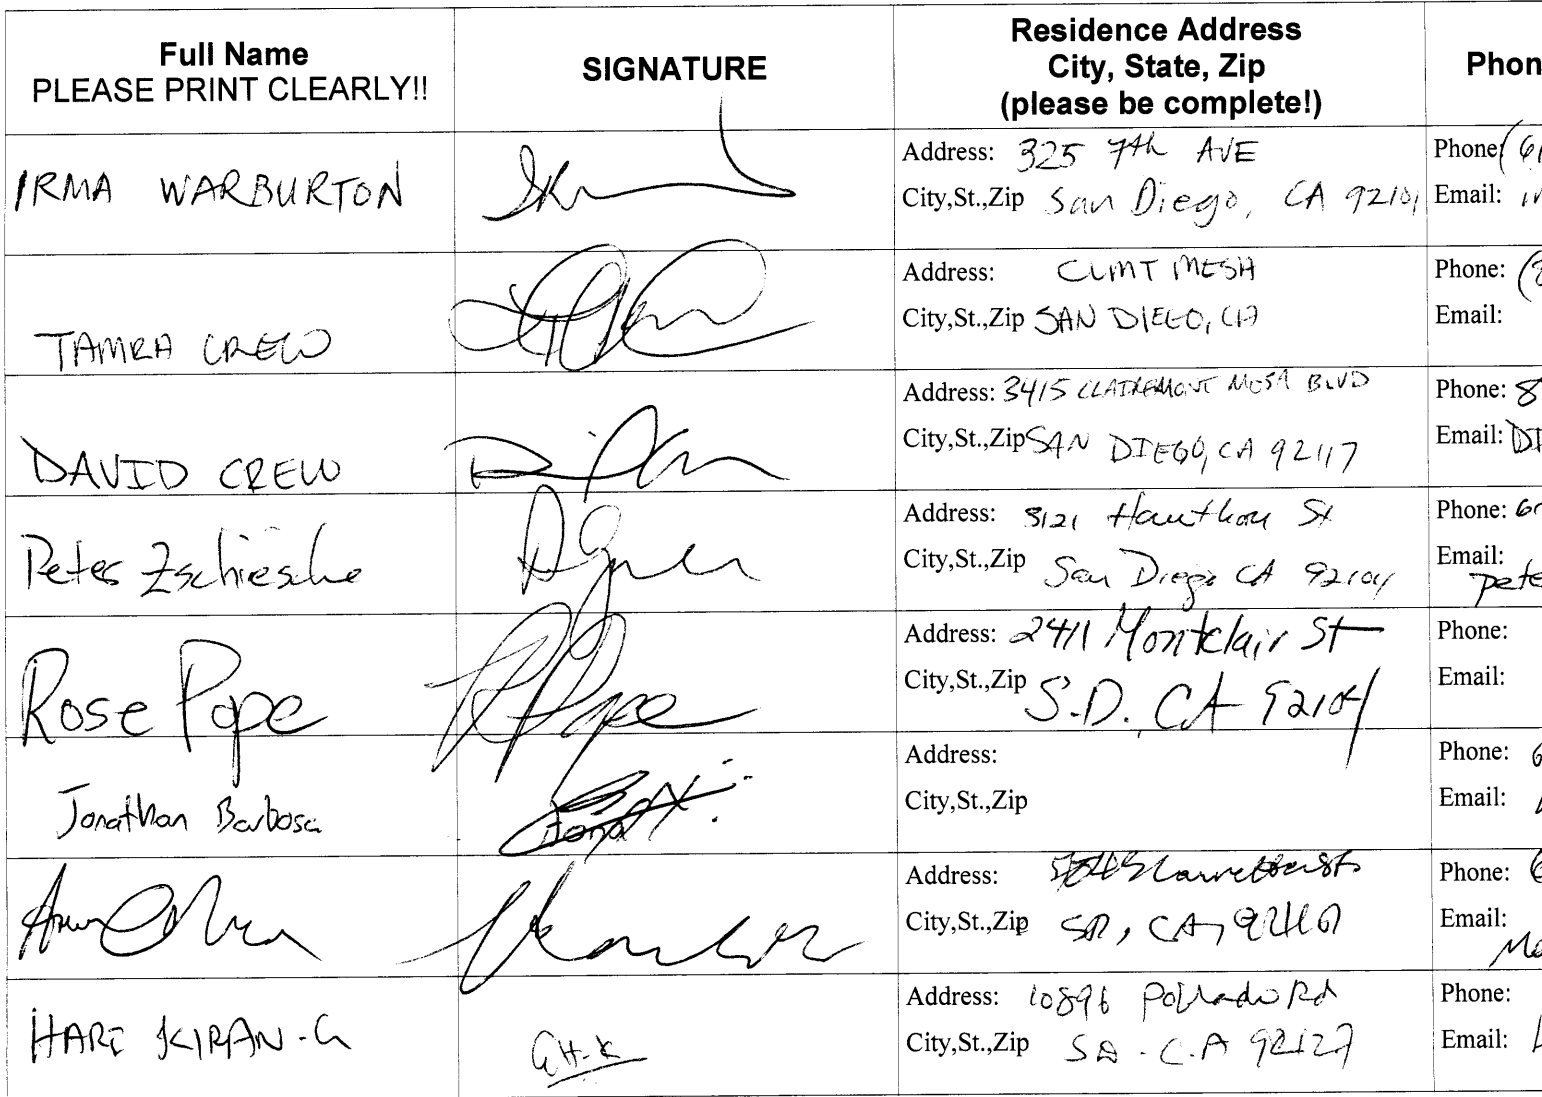 Full Name
PLEASE PRINT CLEARLY!!
SIGNATURE
Residence Address
City, State, Zip
(please be complete!)
Phon
IRMA WARBURTON
Address: 325 7th AVE
City,St.,Zip San Diego, CA 92101
Phone: (61
Email:
TAMRA CREW
Address: CLMT MESA
City,St.,Zip SAN DIEGO, CA
Phone: (8
Email:
DAVID CREW
Address: 3415 CLAIREMONT MESA BLVD
City,St.,Zip SAN DIEGO, CA 92117
Phone: 8
Email: DI
Peter Zschiesche
Address: 3121 Hawthorn St
City,St.,Zip San Diego CA 92104
Phone: 6
Email:
pete
Rose Pope
R Pope
Address: 2411 Montclair St
City,St.,Zip S.D. CA 92104
Phone:
Email:
Jonathan Barbosa
Address:
City,St.,Zip
Phone: 6
Email:
Address:
City,St.,Zip SD, CA,
Phone: 6
Email:
Me
HARI KIRAN-G
GH-K
Address: 10896 Rd
City,St.,Zip SD. C.A 92127
Phone:
Email: